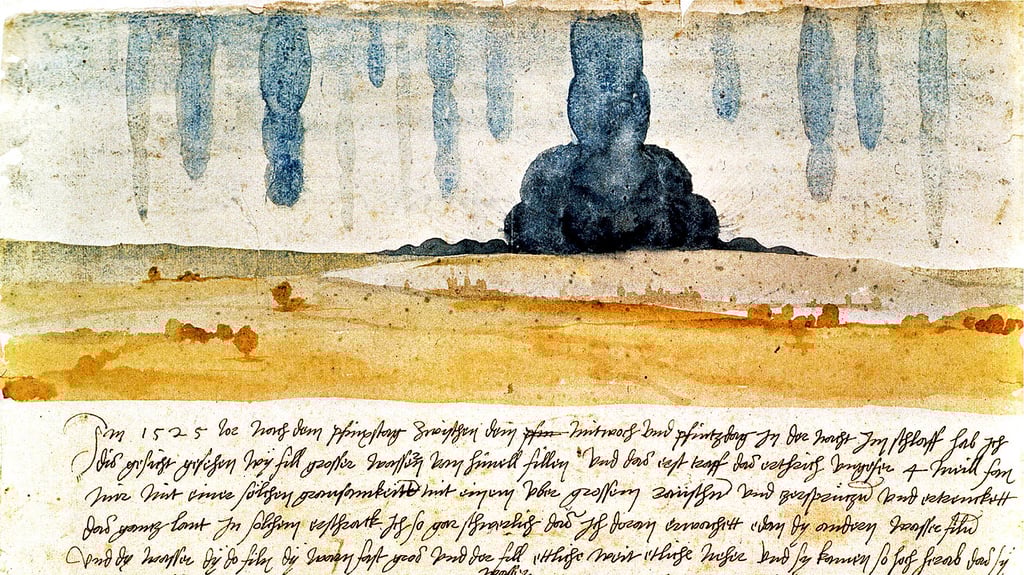 Im 1525 Jor nach dem pfinxstag zwischen dem Mitwoch und pfintzdag in der nacht im schlaff hab ich
dis gesicht gesehen wy fill grosser wassern vom himell fillen Und das erst traff das erthrich ungefer 4 meill fan
mir mit einer solchen grausamkeitt mit einem uber grossem raüschn und zersprützn und ertrenckett
das gantz lant In solchem erschrack ich so gar schwerlich das ich doran erwachett edan dy andern wasser filn
Und dy wasser dy do filn dy warn fast gros und der fill ettliche weit etliche neher und sy kamen so hoch herab das sy